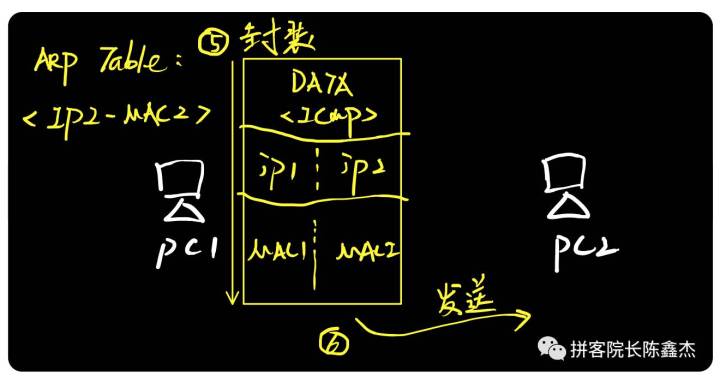 ARP Table:
<IP2-MAC2>
⑤ 封装
DATA
<ICMP>
ip1 ip2
MAC1 MAC2
PC1
PC2
⑥ 发送
拼客院长陈鑫杰